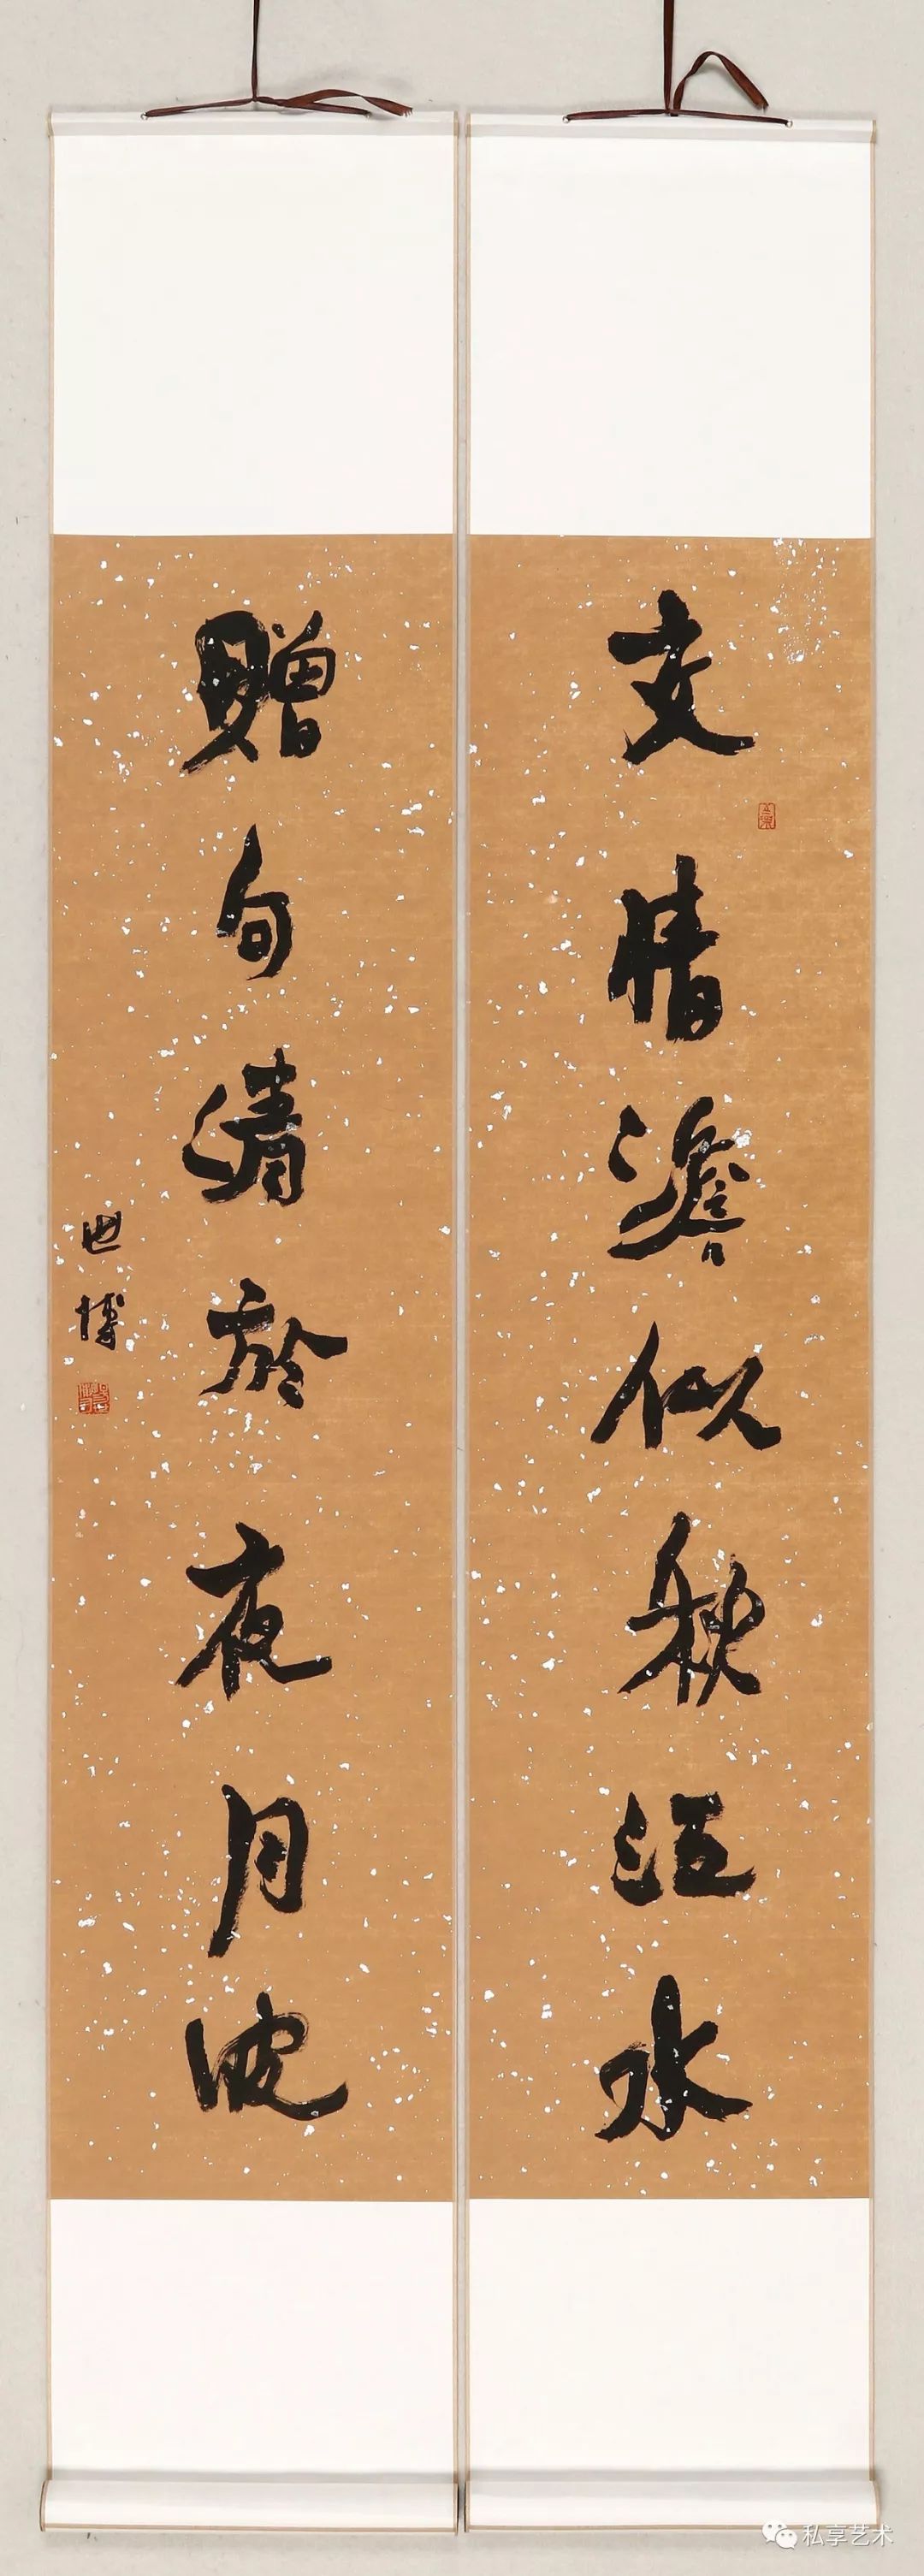 交情澹似秋江水
赠句清於夜月波
世博
私享艺术